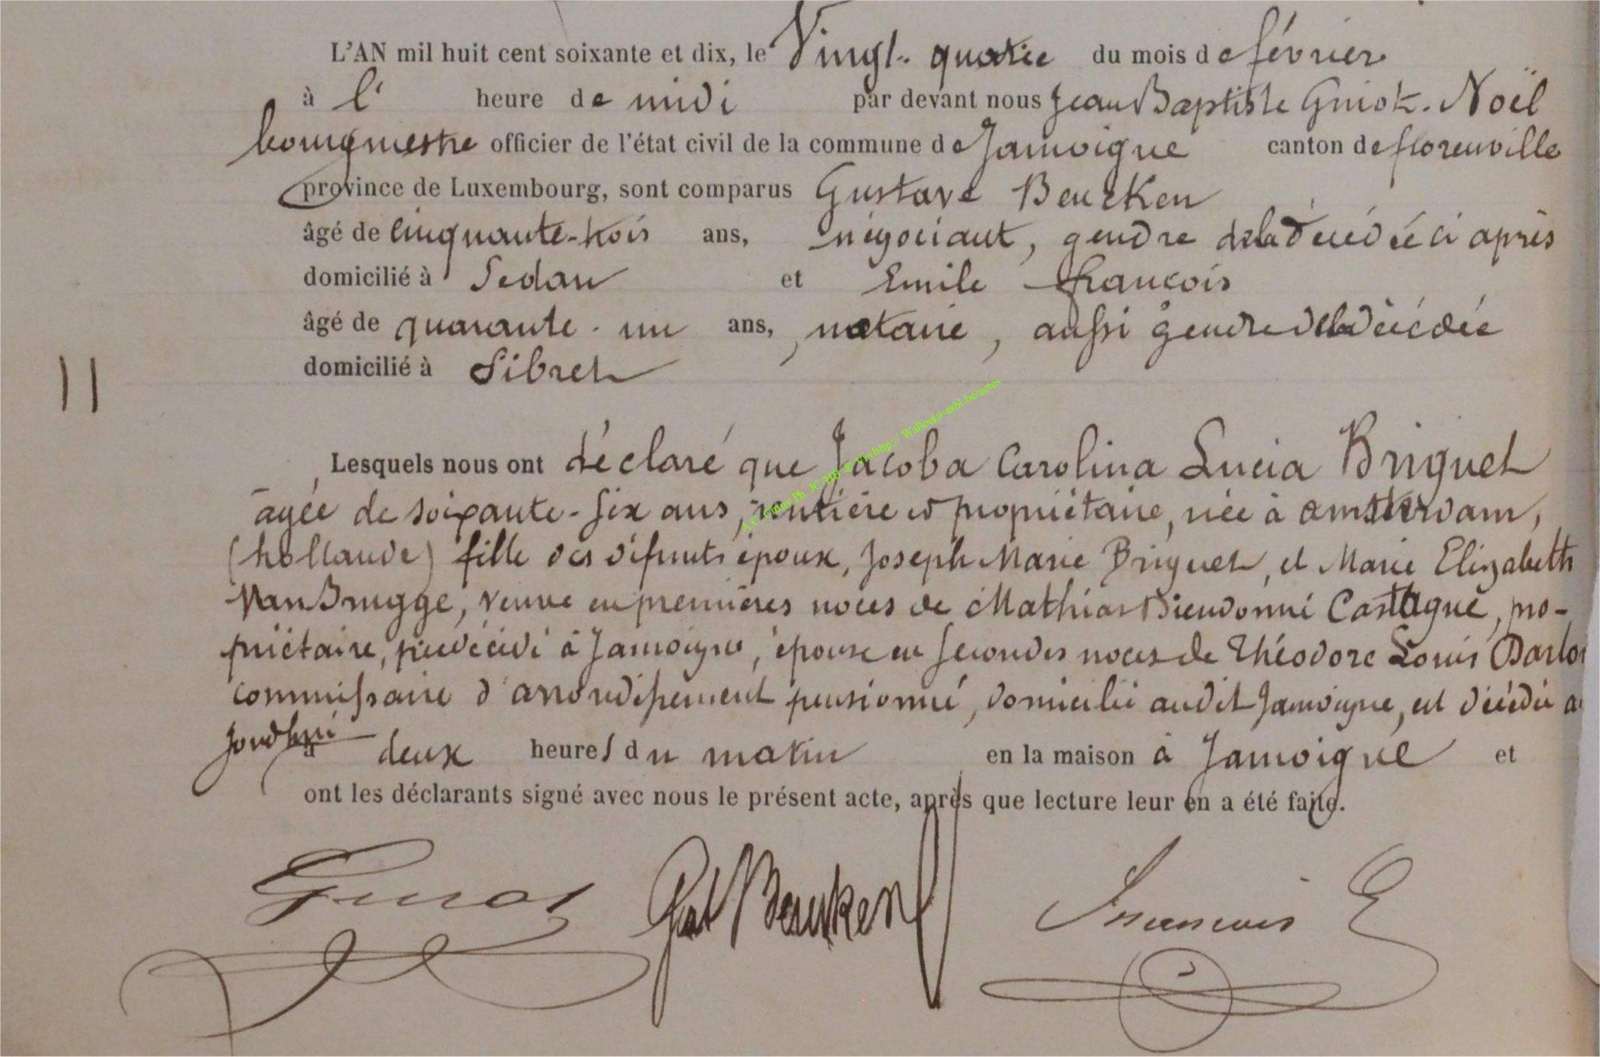 L'AN mil huit cent soixante et dix, le Vingt-quatre du mois de février
à l' heure de midi par devant nous Jean Baptiste Guiot-Noël
bourgmestre officier de l'état civil de la commune de Jamoigne canton de florenville
province de Luxembourg, sont comparus Gustave Beucken
âgé de cinquante-trois ans, négociant, gendre de la décédée ci après
domicilié à Sedan et Emile françois
âgé de quarante-un ans, notaire, aussi gendre de la décédée
domicilié à Sibret
11
Lesquels nous ont déclaré que Jacoba Carolina Lucia Briquet
agée de soixante-six ans, rentière et propriétaire, née à amsterdam,
(hollande) fille des défunts époux, Joseph Marie Briquet, et Marie Elizabeth
Van Brugge, veuve en premières noces de Mathias Dieudonné Castagne, pro-
priétaire, prédécédé à Jamoigne, épouse en secondes noces de Théodore Louis
commissaire d'arrondissement pensionné, domicilié audit Jamoigne, est décédée au
jourd'hui à deux heures du matin en la maison à Jamoigne et
ont les déclarants signé avec nous le présent acte, après que lecture leur en a été faite.
Guiot Gust Beucken François E